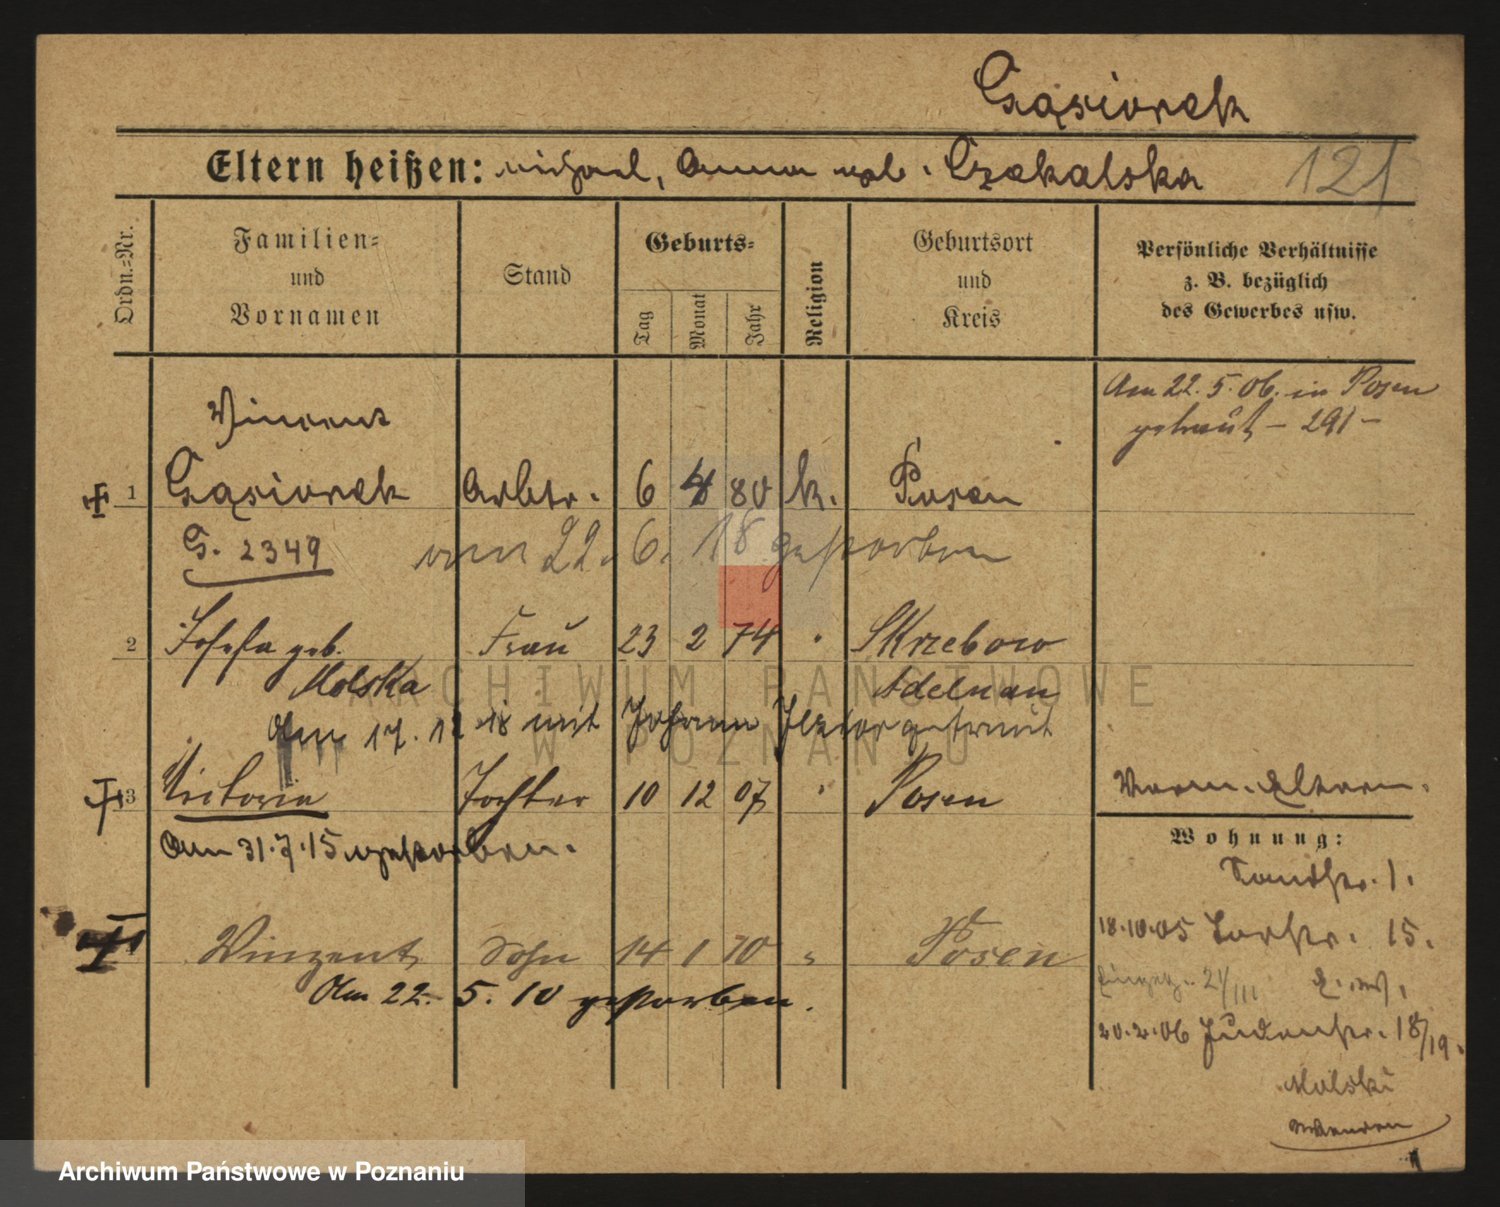 Gąsiorek
Eltern heißen: Michael, Anna geb. Czekalska
121
Ordn.-Nr.
Familien-
und
Vornamen
Stand
Geburts-
Tag
Monat
Jahr
Religion
Geburtsort
und
Kreis
Persönliche Verhältnisse
z. B. bezüglich
des Gewerbes usw.
Am 22.5.06. in Posen
getraut – 291 –
Vincent
1 Gąsiorek Arbtr. 6 4 80 k. Posen
G. 2349
am 22.6.18 gestorben
2 Josefa geb. Frau 23 2 74 " Skrzebow
Molska Adelnau
Am 17.12.18 mit Johann getraut
3 Victoria Tochter 10 12 07 " Posen
Am 31.7.15 gestorben.
Winzent Sohn 14 1 10 " Posen
Am 22. 5. 10 gestorben.
Vorm. Eltern.
Wohnung:
Sandstr. 1.
18.10.05 Torstr. 15.
20.2.06 Judenstr. 18/19.
Molski
wenden
ARCHIWUM PAŃSTWOWE
W POZNANIU
Archiwum Państwowe w Poznaniu